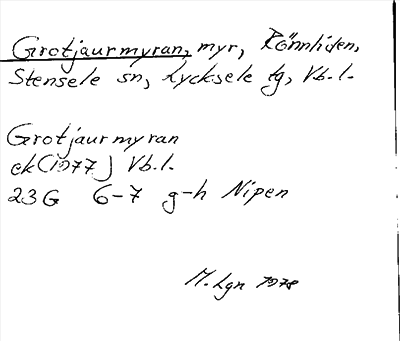 Grotjaurmyran, myr, Rönnliden,
Stensele sn, Lycksele tg, Vb.l.
Grotjaurmyran
ek(1977) Vb.l.
23G 6-7 g-h Nipen
M. Lgn 1978